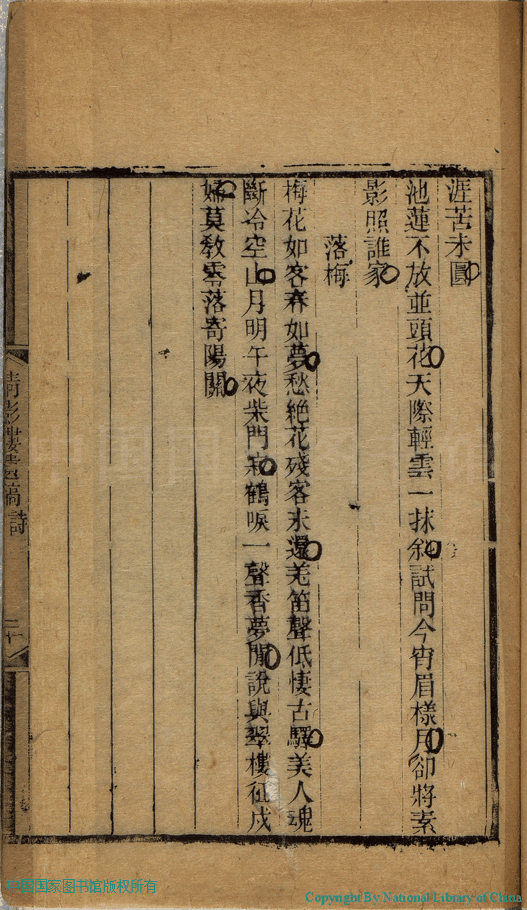 涯苦未圓
池蓮不放並頭花天際輕雲一抹斜試問今宵眉樣月卻將素
影照誰家
落梅
梅花如客春如夢愁絕花殘客未還羌笛聲低悽古驛美人魂
斷冷空山月明午夜柴門寂鶴唳一聲香夢閒說與翠樓征戍
婦莫敎零落寄陽關
清影樓 稿 詩
中国国家图书馆版权所有
Copyright By National Library of China